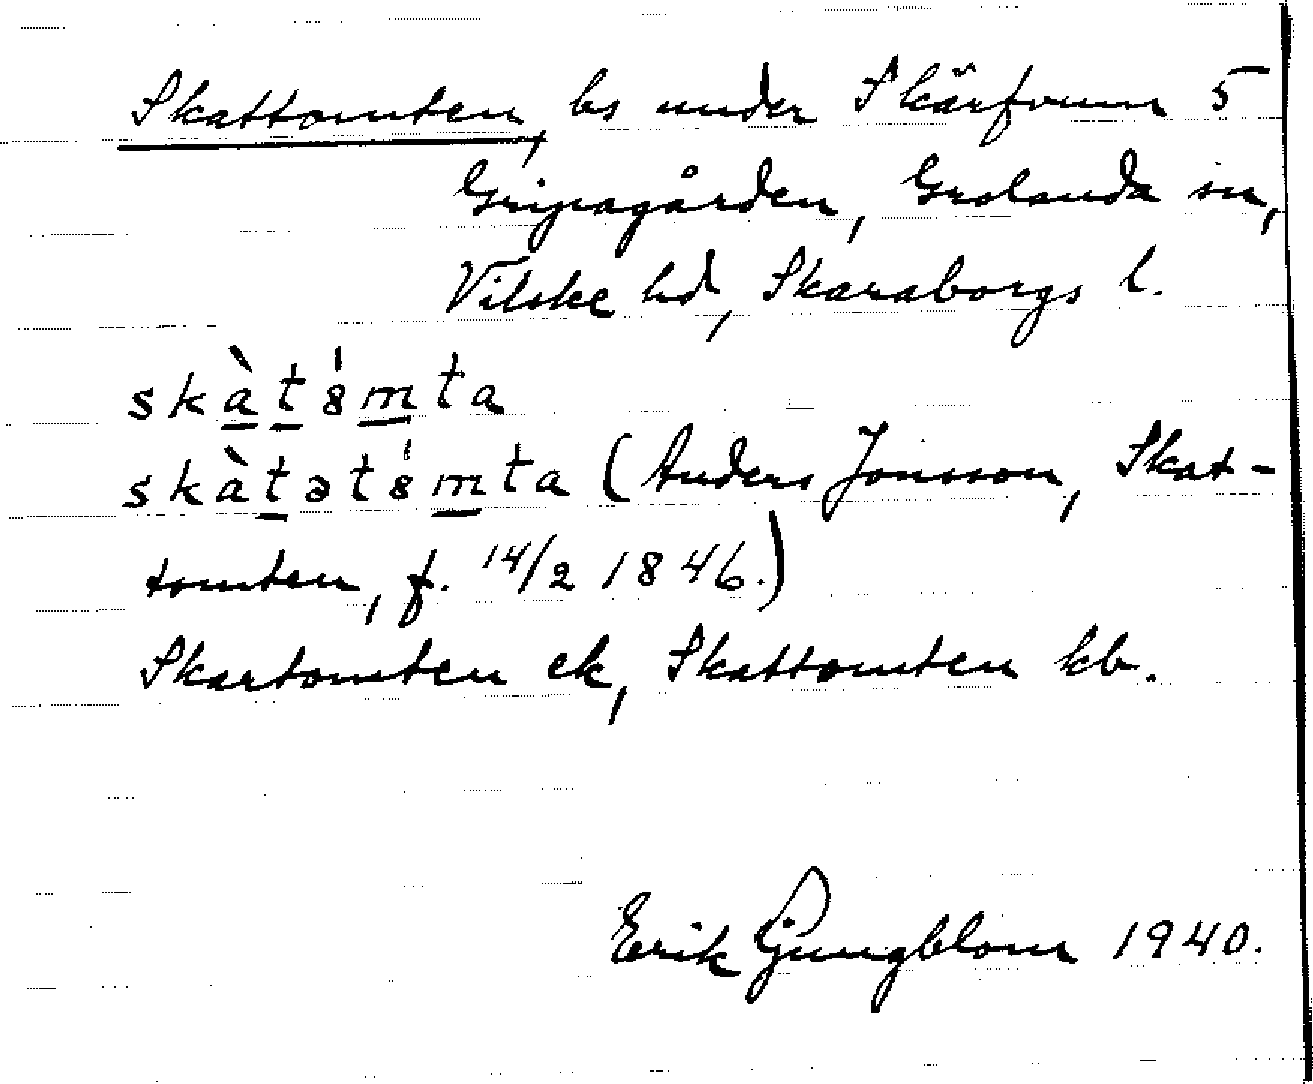 Skattomten, bs under Skärfvum 5
Gripagården, Grolanda sn,
Vilske hd, Skaraborgs l.
skàt8́mta
skàtət8́mta (Anders Jonsson, Skat-
tomten, f. 14/2 1846.)
Skartomten ek, Skattomten kb.
Erik Ljungblom 1940.